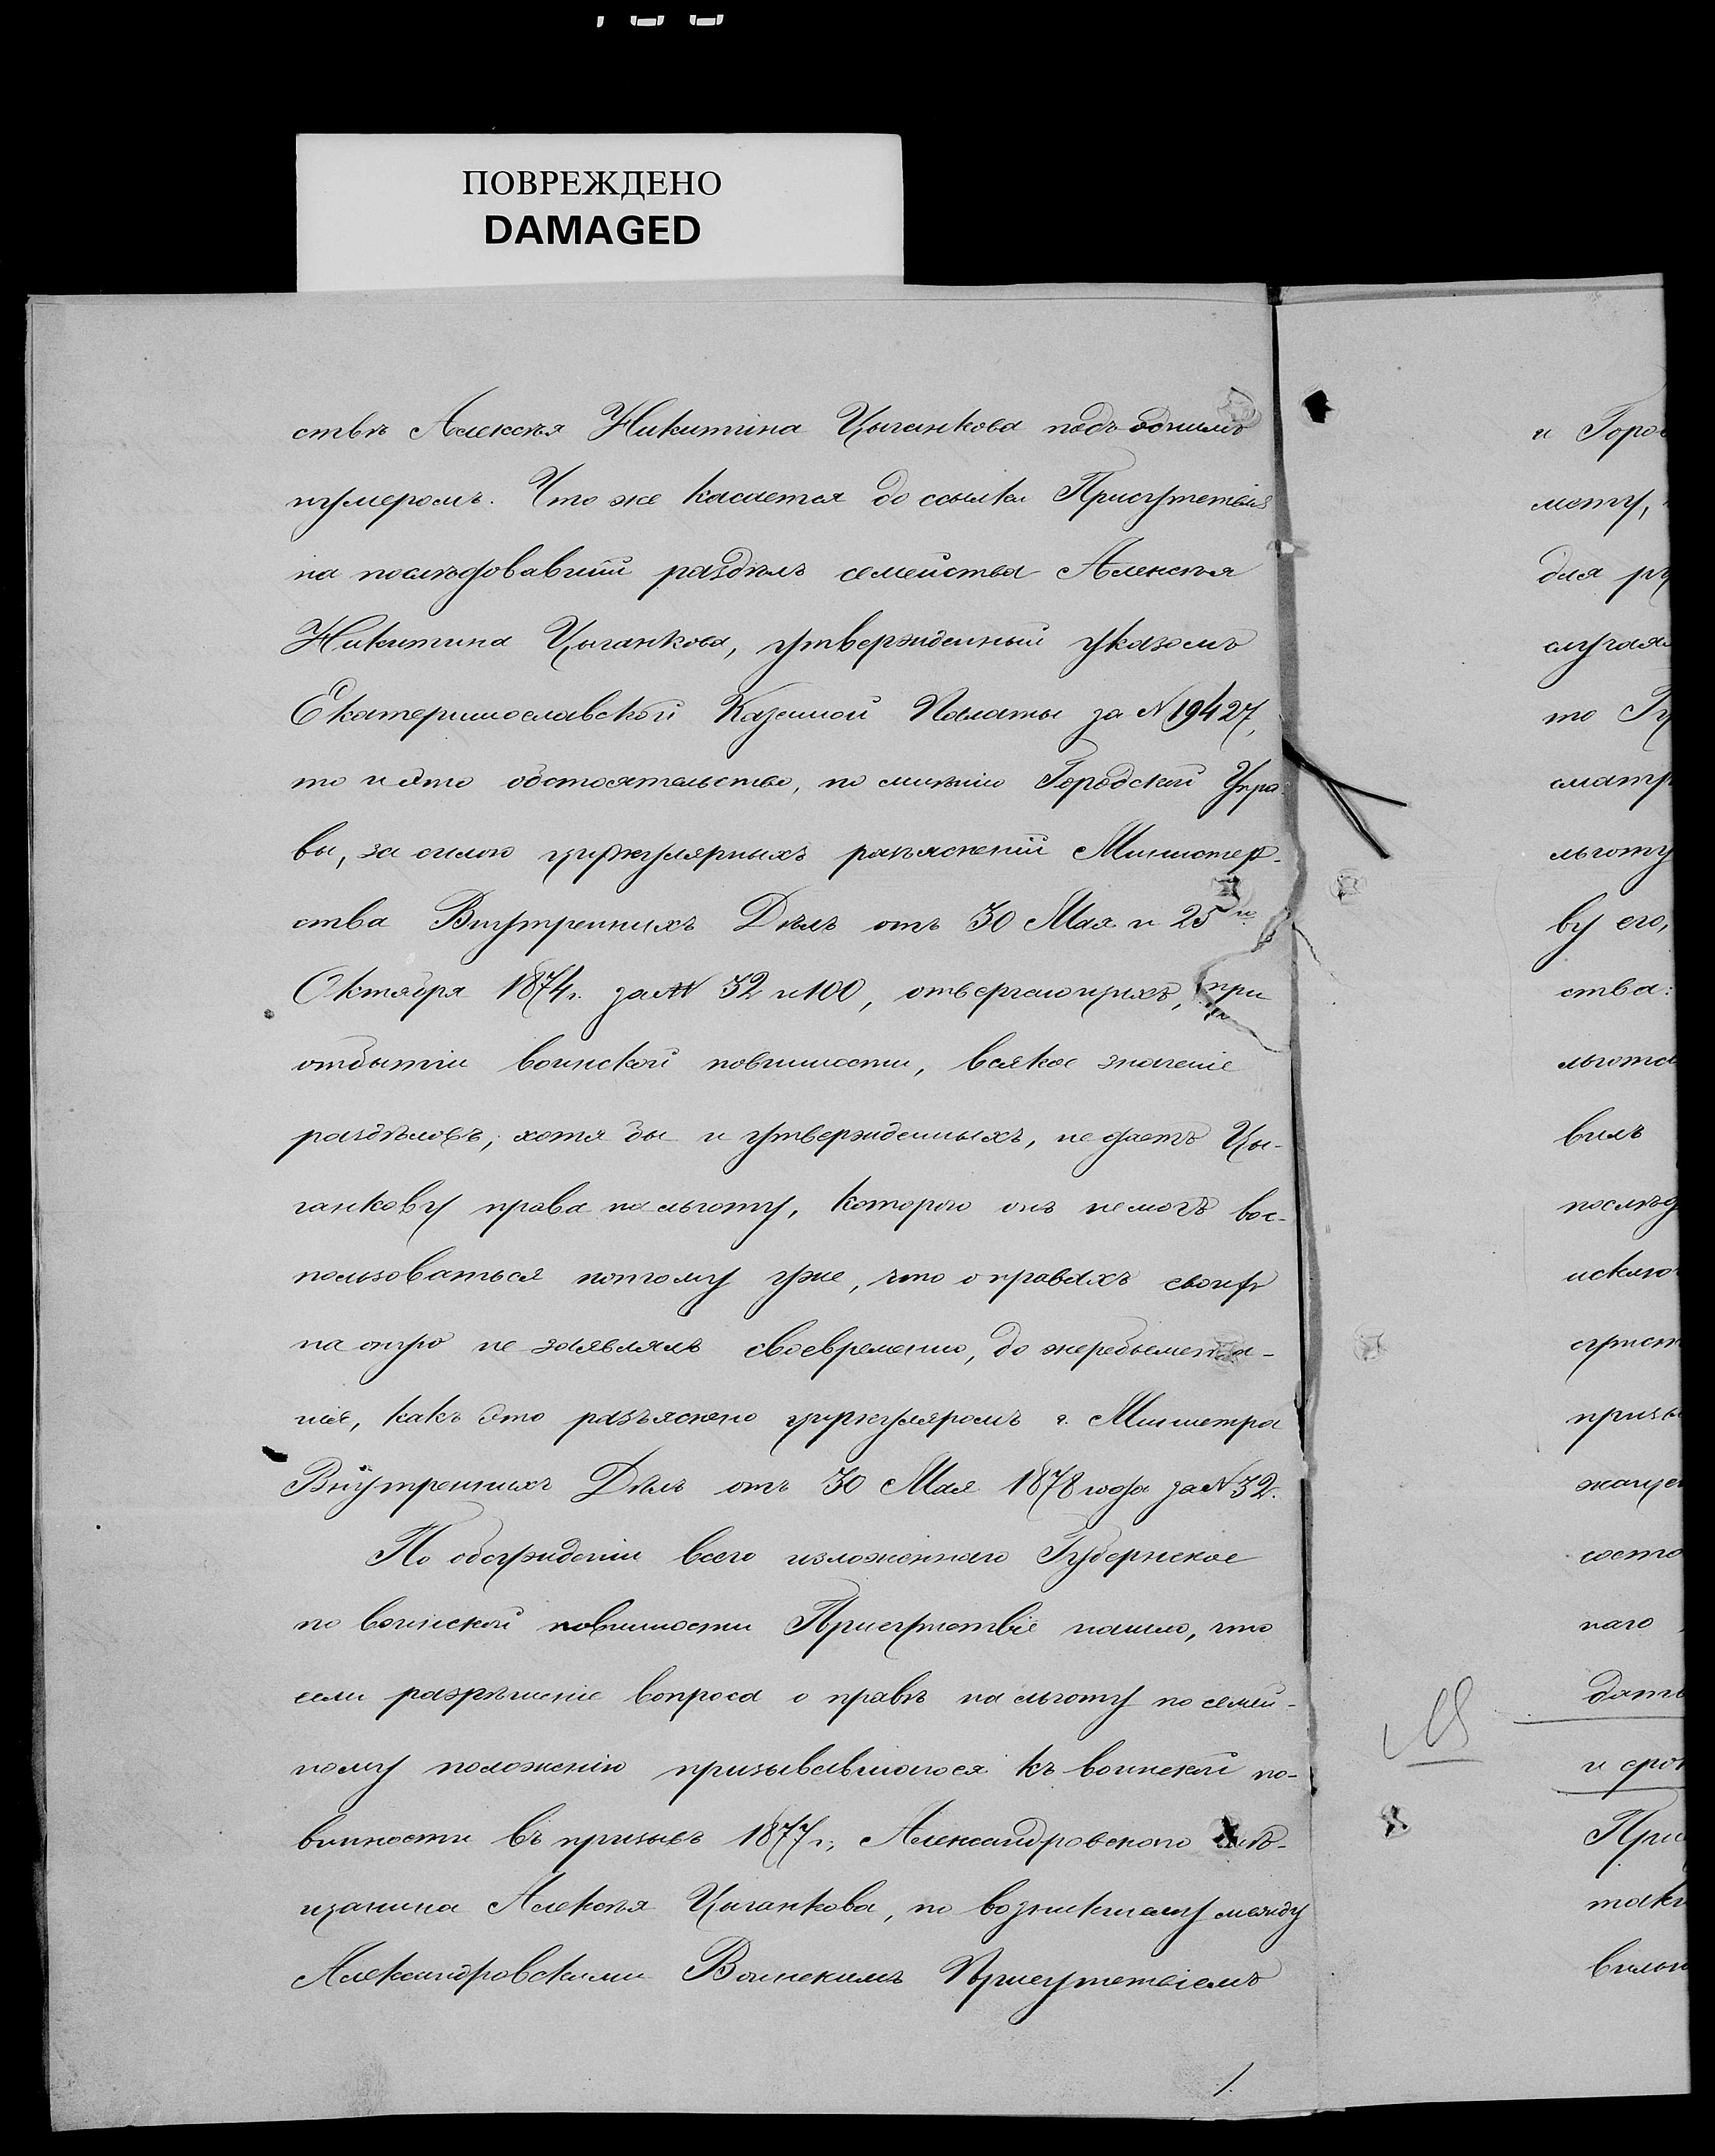 ПОВРЕЖДЕНО
DAMAGED
ствѣ Алексѣя Никитина Цыганкова подъ однимъ
нумеромъ. Что же касается до ссылки Присутствія
на послѣдовавшій раздѣлъ семейства Алексѣя
Никитина Цыганкова, утвержденный указомъ
Екатеринославской Казенной Палаты за № 19427,
то и это обстоятельство, по мнѣнію Городской Упра-
вы, за силою циркулярныхъ разъясненій Министер-
ства Внутреннихъ Дѣлъ отъ 30 Мая и 25го
Октября 1874 г. за №№ 32 и 100, отвергающихъ, при
отбытіи воинской повинности, всякое значеніе
раздѣловъ, хотя бы и утвержденныхъ, не даетъ Цы-
ганкову права на льготу, которою онъ не могъ вос-
пользоваться потому уже, что о правахъ своихъ
на оную не заявлялъ своевременно, до жеребьемета-
нія, какъ это разъяснено циркуляромъ г. Министра
Внутреннихъ Дѣлъ отъ 30 Мая 1878 года за № 32.
По обсужденіи всего изложеннаго Губернское
по воинской повинности Присутствіе нашло, что
если разрѣшеніе вопроса о правѣ на льготу по семей-
ному положенію призывавшагося къ воинской по-
винности въ призывъ 1877 г., Александровскаго мѣ-
щанина Алексѣя Цыганкова, по возникшему между
Александровскими Воинскимъ Присутствіемъ
1.
и Горо
моту,
для ру
случая
то Гу
сматр
льготу
ву его,
ства:
льгота
вилъ
послѣд
исклю
сущест
призы
жаще
состо
наго
дать
и срок
При
таки
вильн